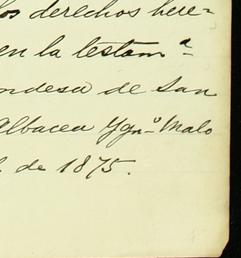 los derechos here=
en la testam.ª
ondesa de San
Albacea Ygn.º Malo
l. de 1875.